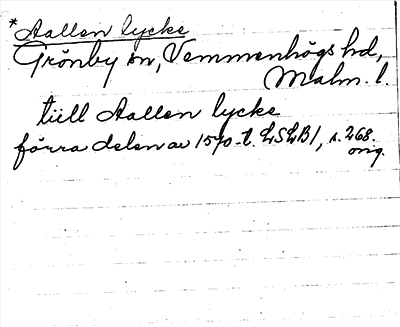 * Aallen lycke
Grönby sn, Vemmenhögs hd,
Malm. l.
tiill Aallen lycke
förra delen av 1570-t. LSLB1, s. 268.
orig.